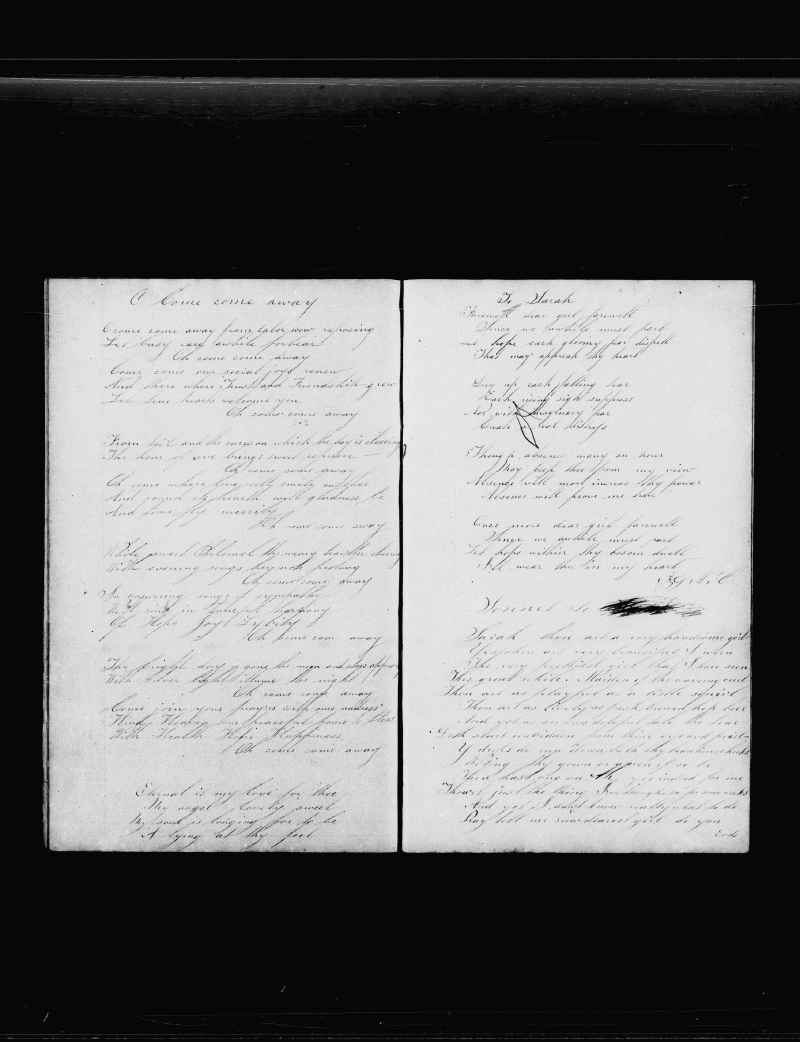 O Come come away
O come come away from labor now reposing
Let busy care awhile forbear
Oh come come away
Come come our social joys renew
And there where Trust and Friendship grew
Let true hearts welcome you
Oh come come away
From toil and the cares on which the day is closing
The hour of eve brings sweet reprieve
Oh come come away
Oh come where love will smile on thee
And round its hearth will gladness be
And time fly merrily
Oh come come away
While sweet Philomel the weary
With evening songs her note prolong
Oh come come away
In answering songs of sympathy
We'll sing in tuneful harmony
Of Hope Joy Liberty
Oh come come away
The bright day is gone the moon and stars appearing
With silver light illume the night
Oh come come away
Come join your prayers with ours address
Kind Heaven our peaceful home to bless
With Health Hope Happiness
Oh come come away
Eternal is my love for thee
My angel lovely sweet
My soul is longing for to be
A lying at thy feet
To Sarah
Farewell dear girl farewell
Since we awhile must part
Let hope each gloomy fear dispell
That may approach thy heart
Dry up each falling tear
Each rising sigh suppress
Nor with imaginary fear
Create real distress
Though absence many an hour
May keep thee from my view
Absence will more increas thy power
Absence will prove me true
Once more dear girl farewell
Since we awhile must part
Let hope within thy bosom dwell
I'll wear thee in my heart
Sonnet to
Sarah thou art a very handsome girl
Upspoken art very beautiful I ween
The very prettyest girl that I have seen
This great while. Maiden of the waving curl
Thou art as playful as a little squirl
Thou art as lively as fresh burned hop beer
And yet as as the deer
do run down both thy beauteous cheeks
thy gown or apron if so be
Thou hast one on Ah you indeed for me
Thou'rt just the thing I've thought so for weeks
And yet I don't know really what to do
Pray tell me now dearest girl do you
Ends